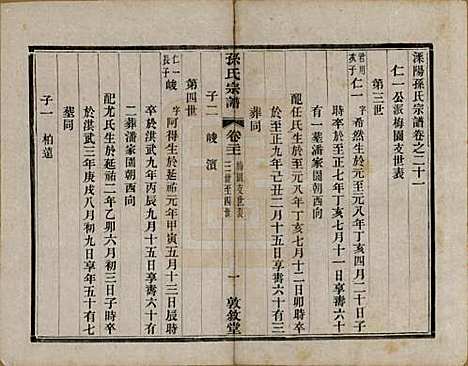 溧陽孫氏宗譜卷之二十一
仁一公派梅園支世表
第三世
君用次子
仁一 字希然生於至元八年丁亥四月二十日子
時卒於至正七年丁亥七月十一日享壽六十
有一葬潘家園朝西向
配任氏生於至元八年丁亥七月十二日卯時卒
於至正九年己丑二月十五日享壽六十有三
墓同
子二 峻 濱
孫氏宗譜 卷二十一 梅園支世表 三世至四世 一 敦敘堂
第四世
仁一長子
峻 字阿得生於延祐元年甲寅五月十三日辰時
卒於洪武九年丙辰九月十五日享壽六十有
二葬潘家園朝西向
配尤氏生於延祐二年乙卯六月初三日子時卒
於洪武三年庚戌八月初九日享年五十有七
墓同
子一 柏遠